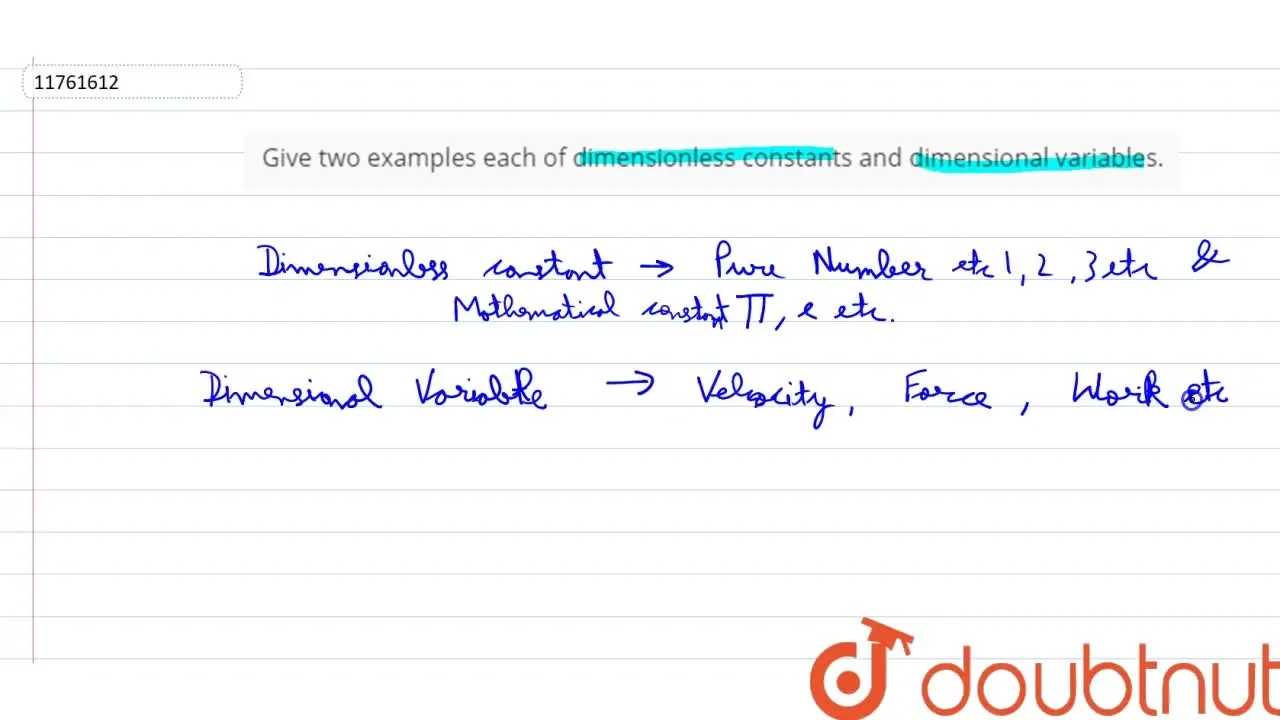 11761612
Give two examples each of dimensionless constants and dimensional variables.
Dimensionless constant → Pure Number etc 1, 2, 3 etc &
Mathematical constant π, e etc.
Dimensional Variable → Velocity, Force, Work etc
doubtnut